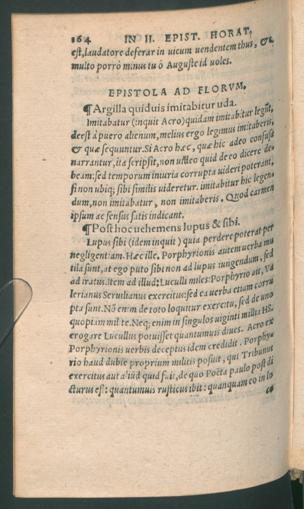 164. IN II. EPIST. HORAT.
est, laudatore deferar in uicum uendentem thus, &c.
multo porrò minus tu ô Auguste id uoles.
EPISTOLA AD FLORVM.
¶ Argilla quiduis imitabitur uda.
Imitabatur (inquit Acro) quidam imitabitur legunt,
deest à puero alienum, melius ergo legimus imitaberis,
& quæ sequuntur. Si Acro hæc, quæ hic adeo confusa
narrantur, ita scripsit, non uideo quid de eo dicere de-
beam: sed temporum iniuria corrupta uideri poterant,
si non ubiq; sibi similis uideretur. imitabitur hic legen-
dum, non imitabatur, non imitaberis. Quod carmen
ipsum ac sensus satis indicant.
¶ Post hoc uehemens lupus & sibi.
Lupus sibi (idem inquit) quia perdere poterat per
negligentiam. Hæc ille. Porphyrionis autem uerba mu
tila sunt, at ego puto sibi non ad lupus iungendum, sed
ad iratus. Item ad illud: Luculli miles: Porphyrio ait, Va
lerianus Seruilianus exercitus: sed ea uerba etiam corru
pta sunt. Nō enim de toto loquitur exercitu, sed de uno
quopiam milite. Neq; enim in singulos uiginti millia HS.
erogare Lucullus potuisset quantumuis diues. Acro ex
Porphyrionis uerbis deceptus idem credidit. Porphy-
rio haud dubie proprium militis posuit, qui Tribunus
exercitus aut aliud quid fuit, de quo Poëta paulo post di
cturus est: quantumuis rusticus ibit: quanquam eo in lo
co